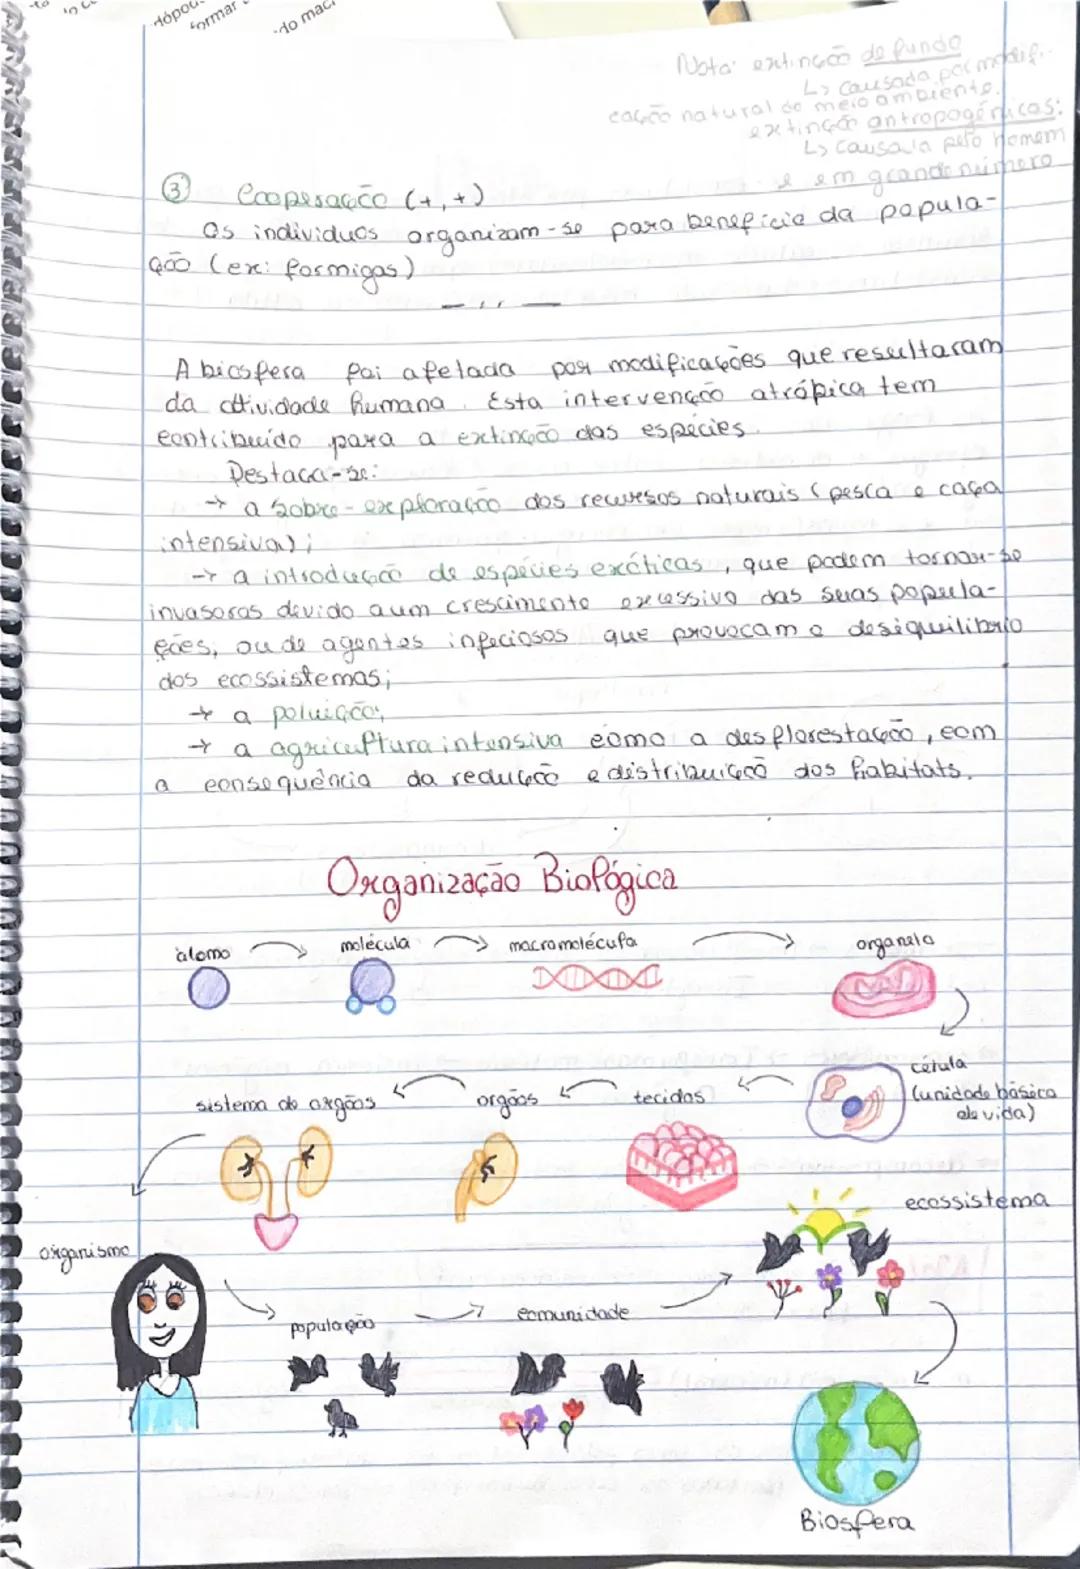 formar
do mac
Nota: extinção de fundo
↳ causada por modifi-
cação natural do meio ambiente.
extinção antropogénicas:
↳ causada pelo homem
e em grande número
③ Cooperação (+,+)
Os individuos organizam-se para beneficio da popula-
ção (ex: formigas)
A biosfera foi afetada por modificações que resultaram
da atividade humana. Esta intervenção atrópica tem
contribuido para a extinção das espécies.
Destaca-se:
→ a sobre-exploração dos recursos naturais (pesca e caça
intensiva);
→ a introdução de espécies exóticas, que podem tornar-se
invasoras devido a um crescimento excessivo das suas popula-
ções, ou de agentes infeciosos que provocam o desiquilibrio
dos ecossistemas;
→ a poluição;
→ a agricultura intensiva como a desflorestação, com
a consequência da redução e distribuição dos habitats.
Organização Biológica
átomo → molécula → macromolécula → organelo
célula
(unidade básica
de vida)
sistema de orgãos ← orgãos ← tecidos
ecossistema
organismo
população → comunidade
Biosfera